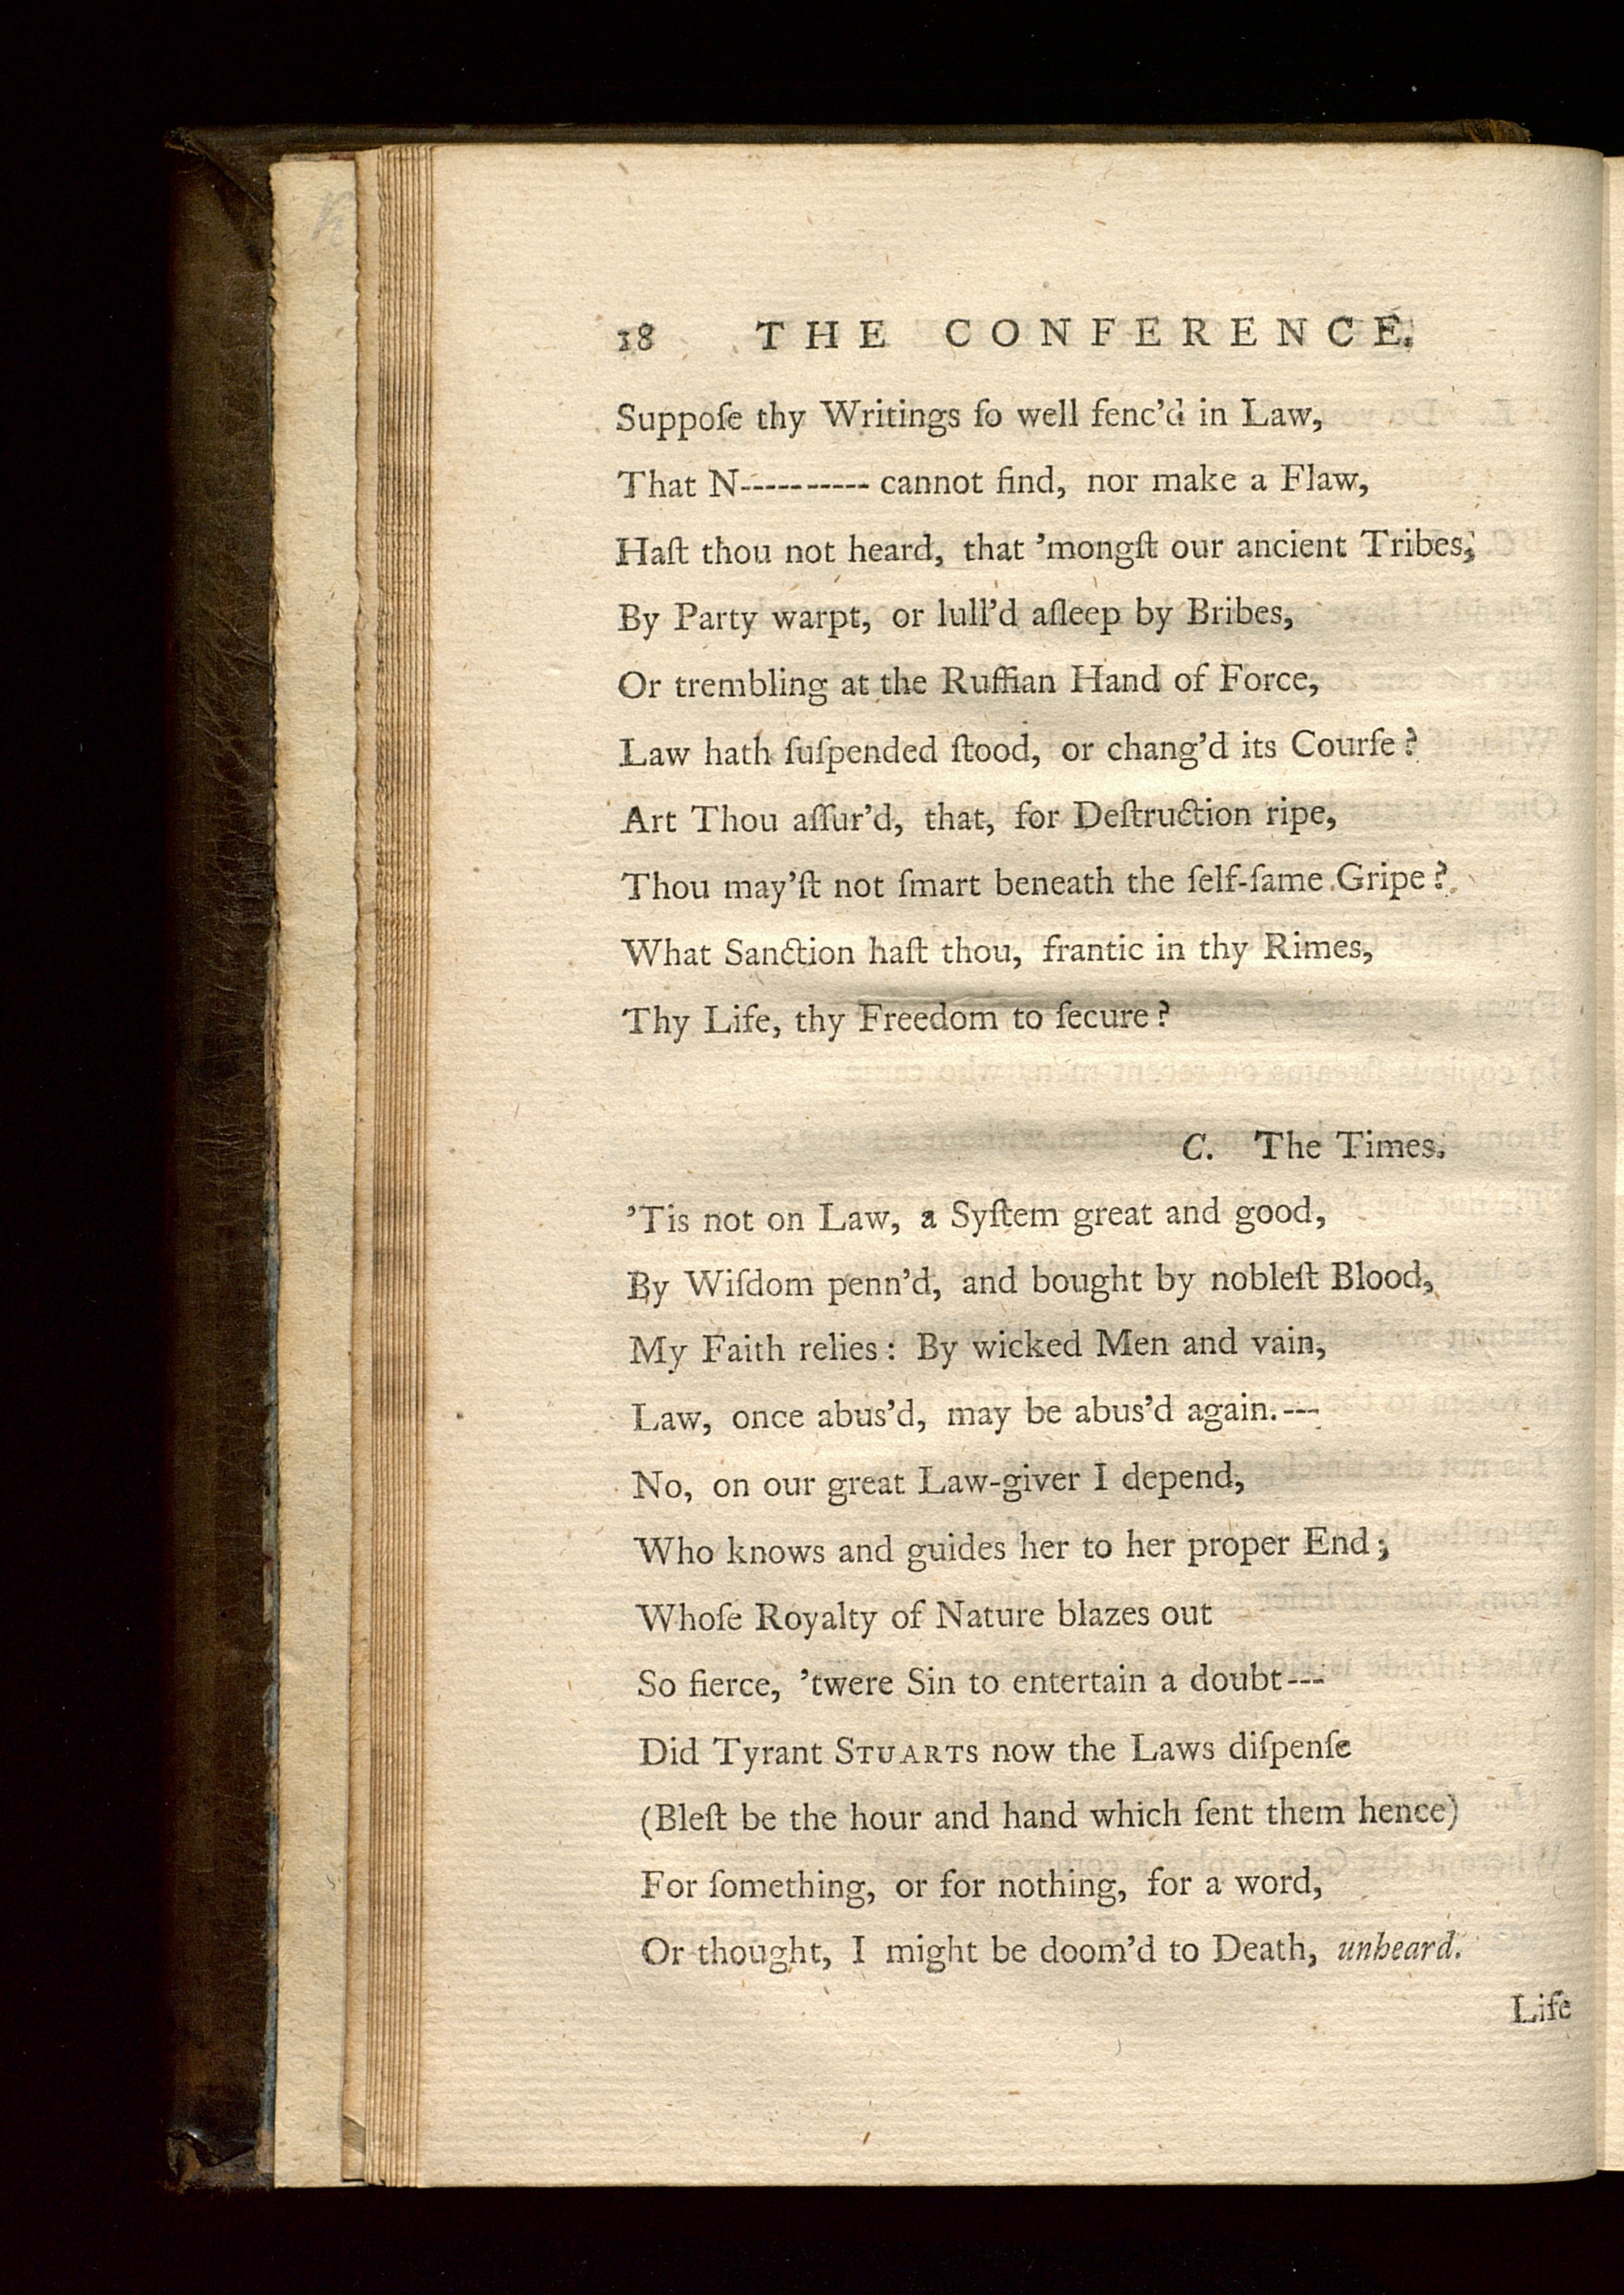 18 THE CONFERENCE.
Suppoſe thy Writings ſo well fenc’d in Law,
That N---------- cannot find, nor make a Flaw,
Haſt thou not heard, that ’mongſt our ancient Tribes,
By Party warpt, or lull’d aſleep by Bribes,
Or trembling at the Ruffian Hand of Force,
Law hath ſuſpended ſtood, or chang’d its Courſe?
Art Thou aſſur’d, that, for Deſtruction ripe,
Thou may’ſt not ſmart beneath the ſelf-ſame Gripe?
What Sanction haſt thou, frantic in thy Rimes,
Thy Life, thy Freedom to ſecure?
C. The Times.
’Tis not on Law, a Syſtem great and good,
By Wiſdom penn’d, and bought by nobleſt Blood,
My Faith relies: By wicked Men and vain,
Law, once abus’d, may be abus’d again.---
No, on our great Law-giver I depend,
Who knows and guides her to her proper End;
Whoſe Royalty of Nature blazes out
So fierce, ’twere Sin to entertain a doubt---
Did Tyrant STUARTS now the Laws diſpenſe
(Bleſt be the hour and hand which ſent them hence)
For ſomething, or for nothing, for a word,
Or thought, I might be doom’d to Death, unheard.
Life